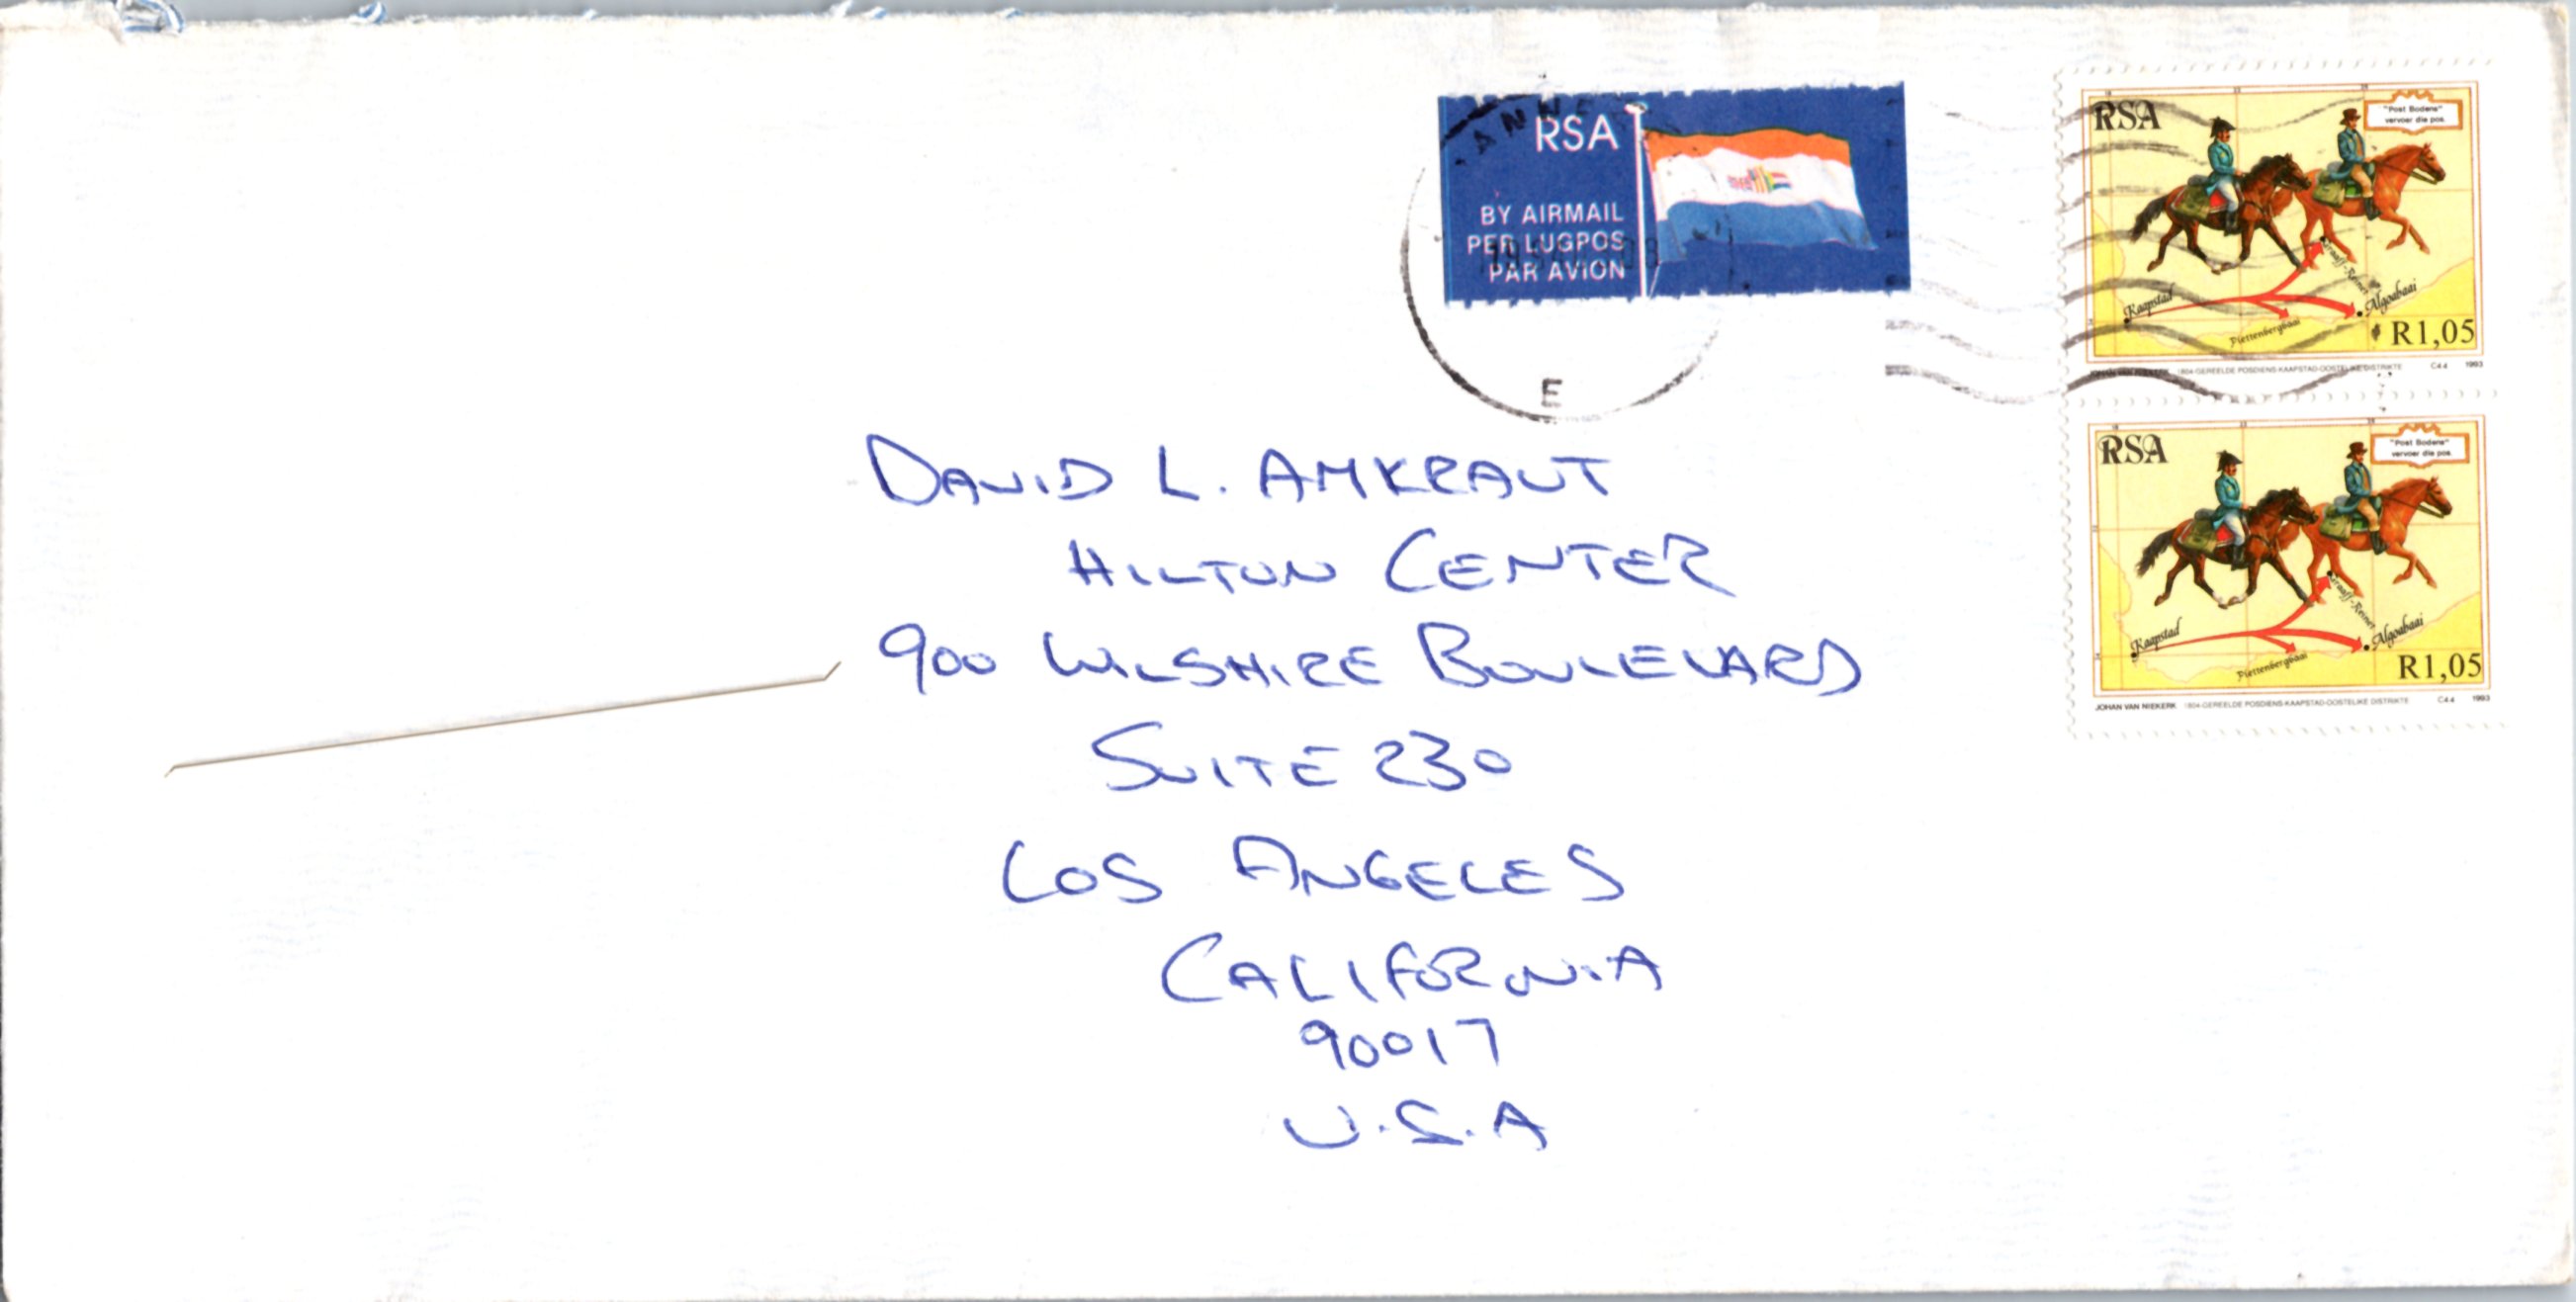 RSA
BY AIRMAIL
PER LUGPOS
PAR AVION
E
RSA
"Post Bodens"
vervoer die pos
Kaapstad
Graaff-Reinet
Algoabaai
Plettenbergbaai
R1,05
JOHAN VAN NIEKERK 1804-GEREELDE POSDIENS-KAAPSTAD-OOSTELIKE DISTRIKTE C44 1993
RSA
"Post Bodens"
vervoer die pos
Kaapstad
Graaff-Reinet
Algoabaai
Plettenbergbaai
R1,05
JOHAN VAN NIEKERK 1804-GEREELDE POSDIENS-KAAPSTAD-OOSTELIKE DISTRIKTE C44 1993
DAVID L. AMKRAUT
HILTON CENTER
900 WILSHIRE BOULEVARD
SUITE 230
LOS ANGELES
CALIFORNIA
90017
U.S.A